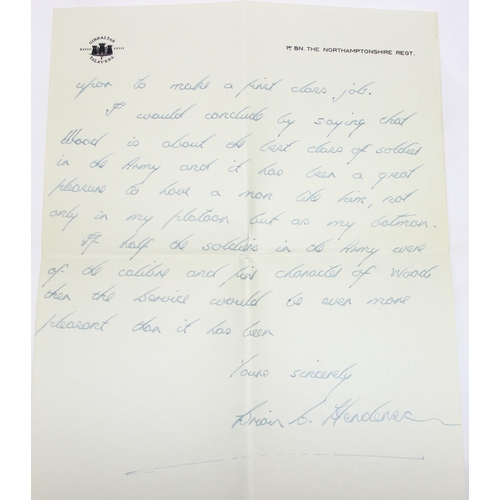 GIBRALTAR
TALAVERA
1ST BN. THE NORTHAMPTONSHIRE REGT.
upon to make a first class job.
I would conclude by saying that
Wood is about the best class of soldier
in the Army and it has been a great
pleasure to have a man like him, not
only in my platoon but as my batman.
If half the soldiers in the Army were
of the calibre and fine character of Wood
then the Service would be even more
pleasant than it has been
Yours sincerely
Brian